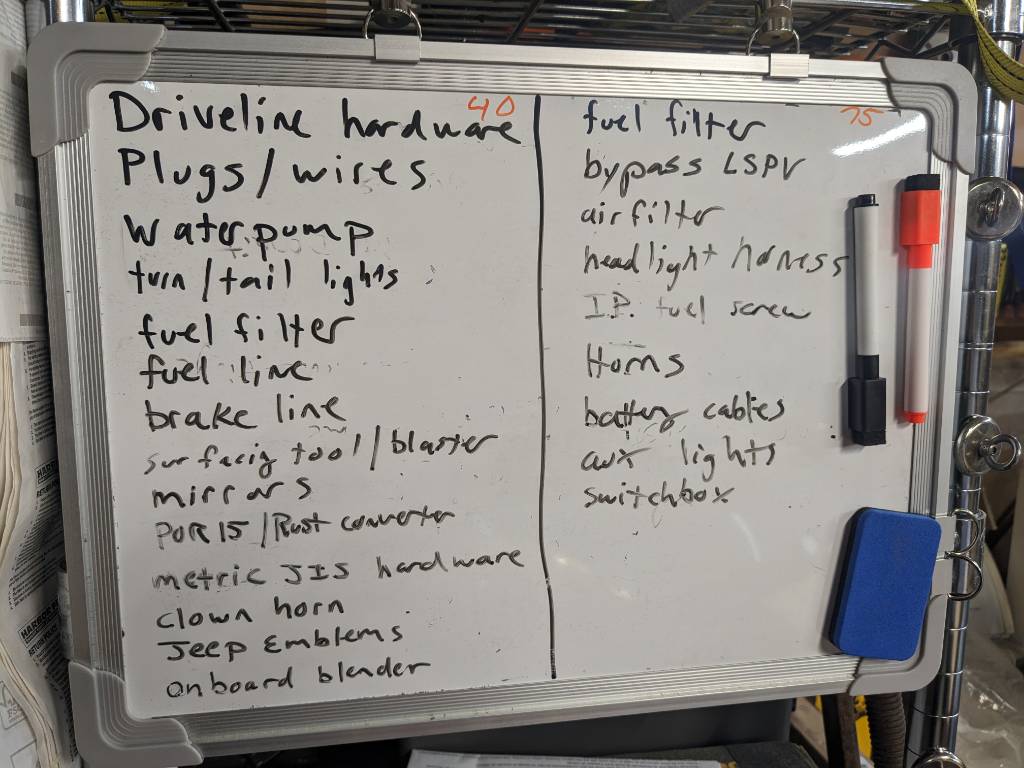 Driveline hardware
40
Plugs/wires
Waterpump
turn/tail lights
fuel filter
fuel line
brake line
surfacig tool/blaster
mirrors
POR15/Rust converter
metric JIS hardware
clown horn
Jeep Emblems
Onboard blender
75
fuel filter
bypass LSPV
airfilter
headlight harness
I.P. fuel screw
Horns
battery cables
aux lights
switchbox